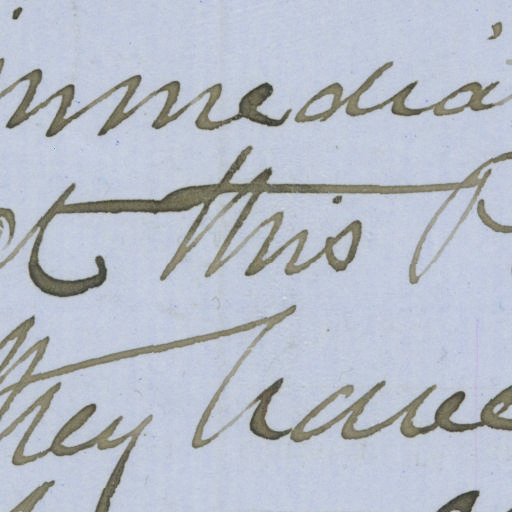 immedia
at this P
they have